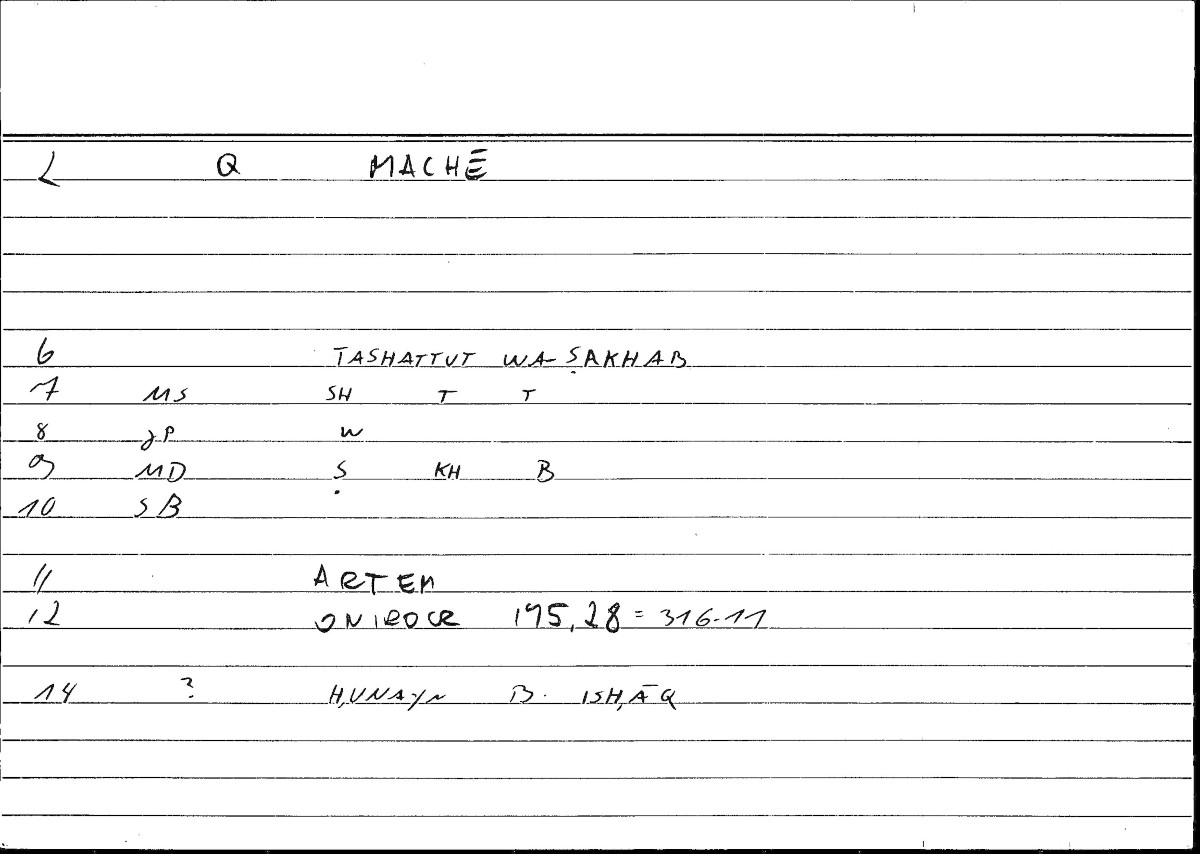 L Q MACHĒ
6 TASHATTUT WA-ṢAKHAB
7 MS SH T T
8 JP W
9 MD Ṣ KH B
10 SB
11 ARTEM
12 ONIROCR 175,28 = 316.11
14 ? ḤUNAYN B. ISḤĀQ